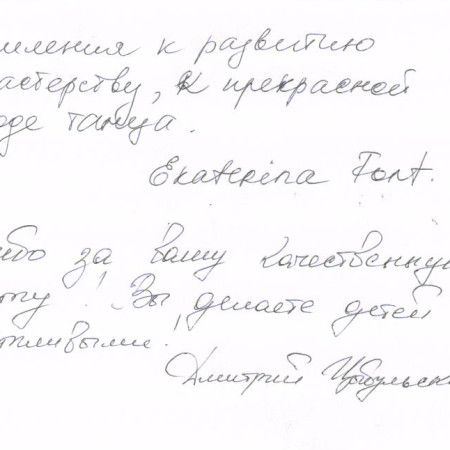 мления к развитию
астерству, к прекрасной
оде танца.
Ekaterina Font.
ибо за вашу качественную
оту! Вы делаете детей
тливыми!
Дмитрий Цыбульск